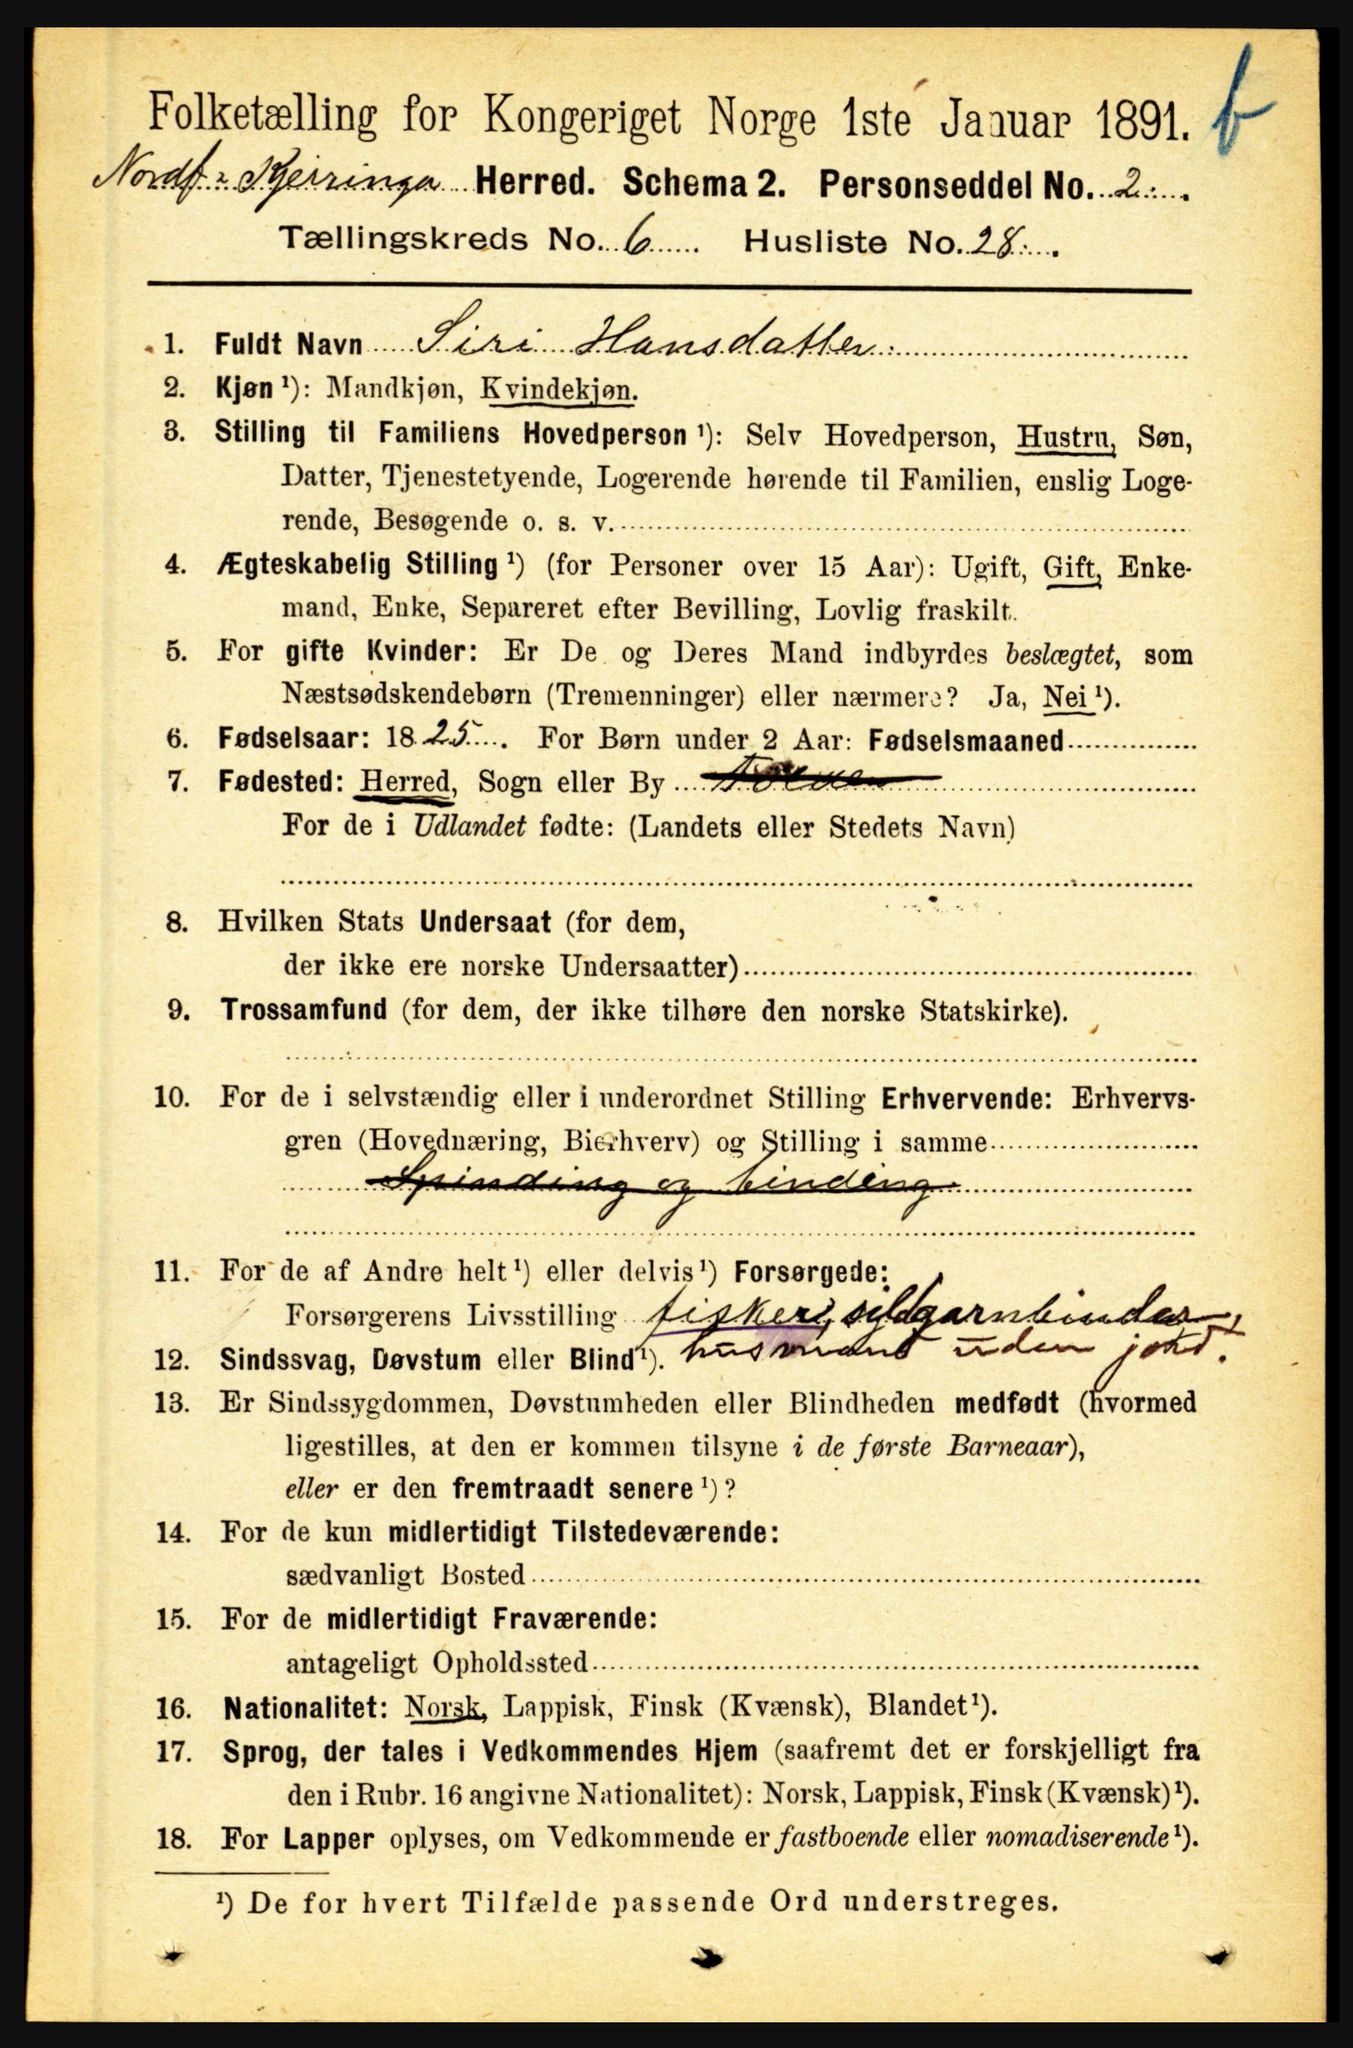 b
Folketælling for Kongeriget Norge 1ste Januar 1891.
Nordf: Kjerringø Herred. Schema 2. Personseddel No. 2.
Tællingskreds No. 6 Husliste No. 28.
1. Fuldt Navn Siri Hansdatter
2. Kjøn ¹): Mandkjøn, Kvindekjøn.
3. Stilling til Familiens Hovedperson ¹): Selv Hovedperson, Hustru, Søn,
Datter, Tjenestetyende, Logerende hørende til Familien, enslig Loge-
rende, Besøgende o. s. v.
4. Ægteskabelig Stilling ¹) (for Personer over 15 Aar): Ugift, Gift, Enke-
mand, Enke, Separeret efter Bevilling, Lovlig fraskilt.
5. For gifte Kvinder: Er De og Deres Mand indbyrdes beslægtet, som
Næstsødskendebørn (Tremenninger) eller nærmere? Ja, Nei ¹).
6. Fødselsaar: 1825. For Børn under 2 Aar: Fødselsmaaned
7. Fødested: Herred, Sogn eller By
For de i Udlandet fødte: (Landets eller Stedets Navn)
8. Hvilken Stats Undersaat (for dem,
der ikke ere norske Undersaatter)
9. Trossamfund (for dem, der ikke tilhøre den norske Statskirke).
10. For de i selvstændig eller i underordnet Stilling Erhvervende: Erhvervs-
gren (Hovednæring, Bierhverv) og Stilling i samme
Spinding og binding
11. For de af Andre helt ¹) eller delvis ¹) Forsørgede:
Forsørgerens Livsstilling fisker, sildgarnbinder,
husmand uden jord.
12. Sindssvag, Døvstum eller Blind ¹).
13. Er Sindssygdommen, Døvstumheden eller Blindheden medfødt (hvormed
ligestilles, at den er kommen tilsyne i de første Barneaar),
eller er den fremtraadt senere ¹)?
14. For de kun midlertidigt Tilstedeværende:
sædvanligt Bosted
15. For de midlertidigt Fraværende:
antageligt Opholdssted
16. Nationalitet: Norsk, Lappisk, Finsk (Kvænsk), Blandet ¹).
17. Sprog, der tales i Vedkommendes Hjem (saafremt det er forskjelligt fra
den i Rubr. 16 angivne Nationalitet): Norsk, Lappisk, Finsk (Kvænsk) ¹).
18. For Lapper oplyses, om Vedkommende er fastboende eller nomadiserende ¹).
¹) De for hvert Tilfælde passende Ord understreges.